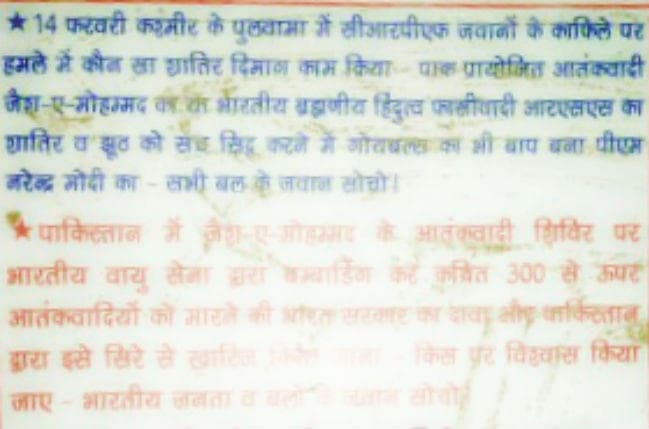 ★ 14 फरवरी कश्मीर के पुलवामा में सीआरपीएफ जवानों के काफिले पर
हमले में कौन सा शातिर दिमाग काम किया - पाक प्रायोजित आतंकवादी
जैश-ए-मोहम्मद का या भारतीय ब्रह्मणीय हिंदुत्व फासीवादी आरएसएस का
शातिर व झूठ को सच सिद्ध करने में गोयबल्स का भी बाप बना पीएम
नरेन्द्र मोदी का - सभी बल के जवान सोचो।
★ पाकिस्तान में जैश-ए-मोहम्मद के आतंकवादी शिविर पर
भारतीय वायु सेना द्वारा बम्बार्डिंग कर कथित 300 से ऊपर
आतंकवादियों को मारने की भारत सरकार का दावा और पाकिस्तान
द्वारा इसे सिरे से खारिज किया जाना - किस पर विश्वास किया
जाए - भारतीय जनता व बलों के जवान सोचो।